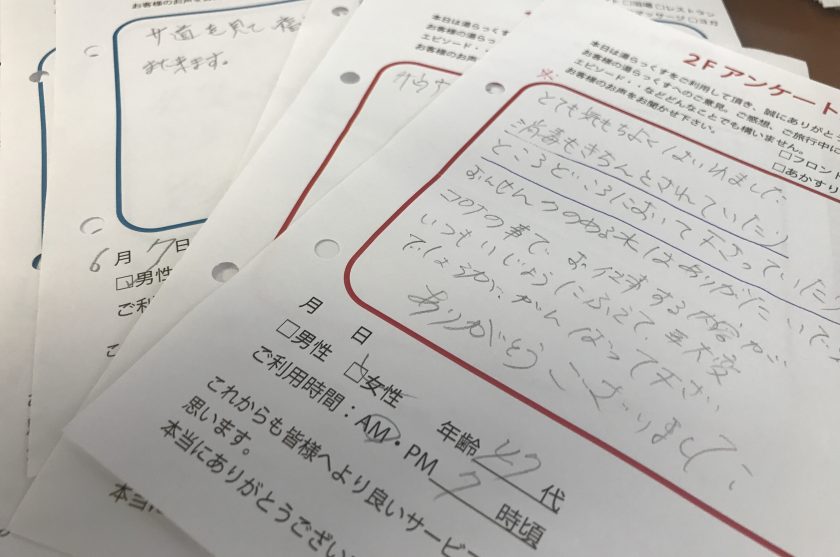 2Fアンケート
本日は湯らっくすをご利用して頂き、誠にありがとう
お客様の湯らっくすへのご意見。ご感想、ご旅行中に
エピソード・・などどんなことでも構いません。
お客様のお声をお聞かせ下さい。
□フロント
□あかすり
とても気もちよくはいれました
消毒もきちんとされていたり
ところどころにおいて下さっていたり
コロナの事で、お仕事する内容が
いつもいじょうにふえて、
大変
でしょうが、がんばって下さい
ありがとうございました
月 日
□男性 □女性
年齢 47 代
ご利用時間：AM・PM 7 時頃
これからも皆様へより良いサービ
思います。
本当にありがとうござい
サ道を見て
また来ます。
6月7日
□男性
ご利
本日は湯らっくす
お客様の湯らっ
エピソード・・
お客様のお声
サウナ
お客様のお声をお聞かせ下
レストラン
マッサージ □ヨガ